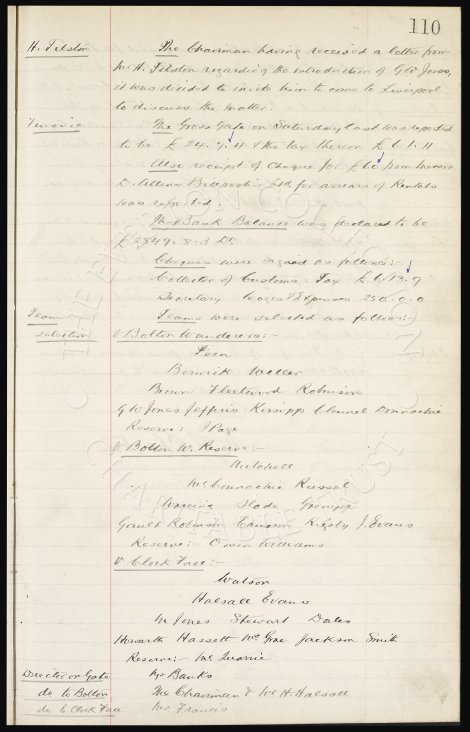 110
H. Tilston The Chairman having received a letter from
Mr H. Tilston regarding the introduction of G W Jones,
it was decided to invite him to come to Liverpool
to discuss the matter.
Finance The Gross Gate on Saturday last was reported
to be £ 24. 7. 11 & the tax thereon £ 6. 1. 11
Also receipt of Cheque for £60 from Messrs
D. Allean Ltd for arrears of Rentals
was reported.
The Bank Balance was declared to be
£2849. 8. 3 Dr.
Cheques were signed as follows:-
Collector of Customs Tax £ 6/13. 9
Secretary Wages & Expenses 250. 0. 0
Team Teams were selected as follows:-
selection v Bolton Wanderers:-
Fern
Berwick Weller
Brown Fleetwood Robinson
G W Jones Jefferis Kirsopp Clennell Donnachie
Reserve: J Page
v Bolton W. Reserve:-
Mitchell
McConnachie Russel
Wareing Slade Grenyer
Gault Robinson Cameron Rigsby J. Evans
Reserve:- Owen Williams
v Clock Face:-
Watson
Halsall Evans
M Jones Stewart Dales
Howarth Hassett McGrae Jackson Smith
Reserve:- McQuarrie
Director on Gate Mr Banks
do to Bolton The Chairman & Mr H. Halsall
do to Clock Face Mr Francis